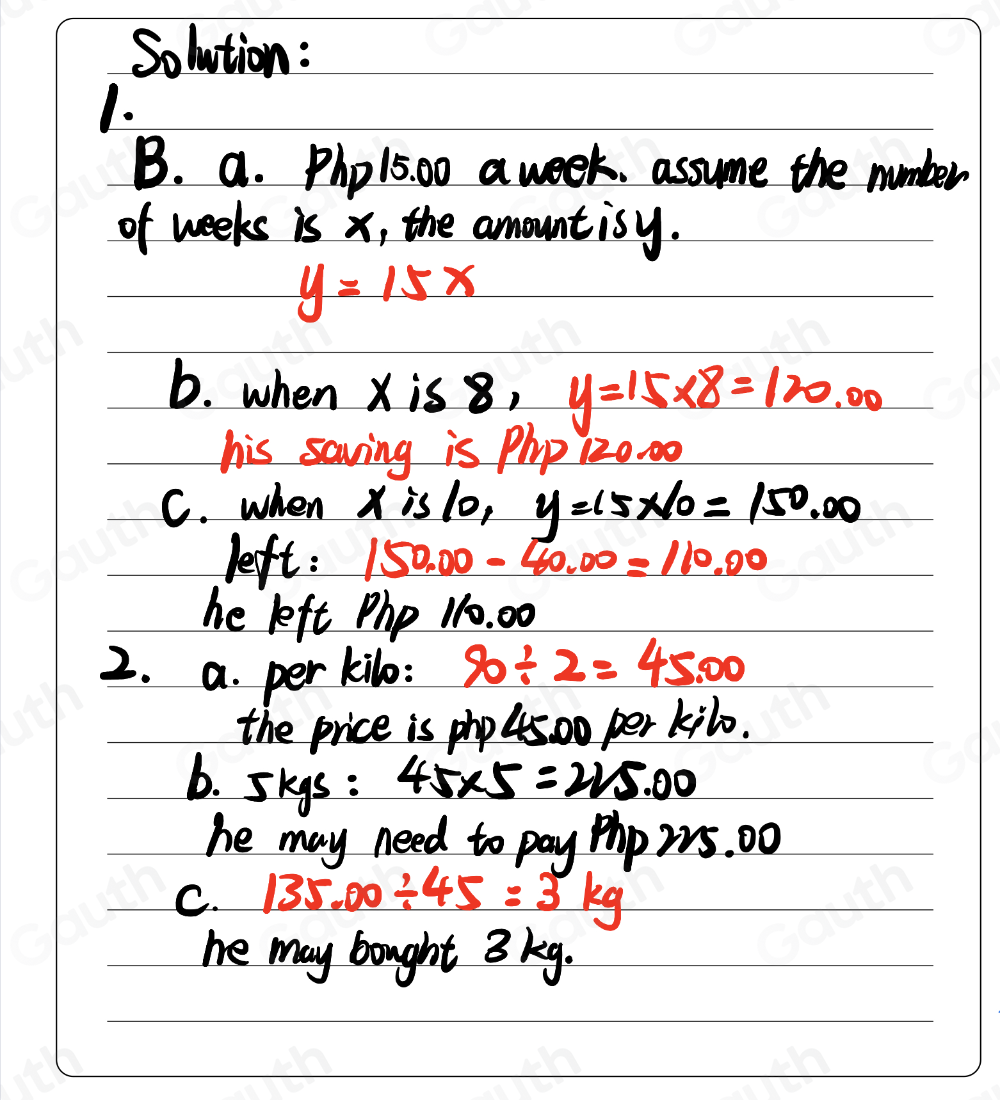 Solution:
1.
B. a. Php 15.00 a week. assume the number
of weeks is x, the amount is y.
y = 15x
b. when x is 8, y=15×8=120.00
his saving is Php 120.00
C. when x is 10, y=15×10= 150.00
left: 150.00 - 40.00 = 110.00
he left Php 110.00
2. a. per kilo: 90÷2= 45.00
the price is php 45.00 per kilo.
b. 5kgs: 45×5=225.00
he may need to pay Php 225.00
C. 135.00÷45 = 3 kg
he may bought 3 kg.